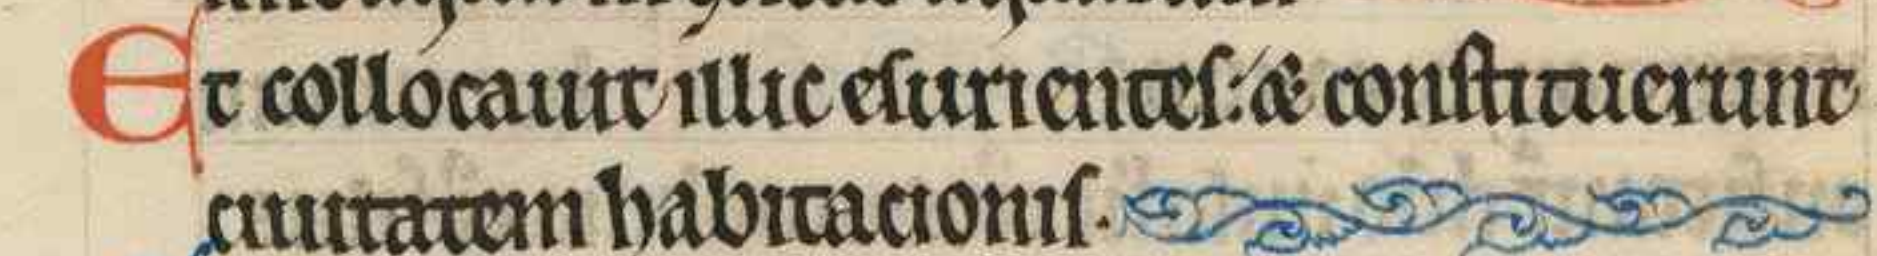 Et collocauit illic esurientes: & constituerunt
ciuitatem habitacionis.